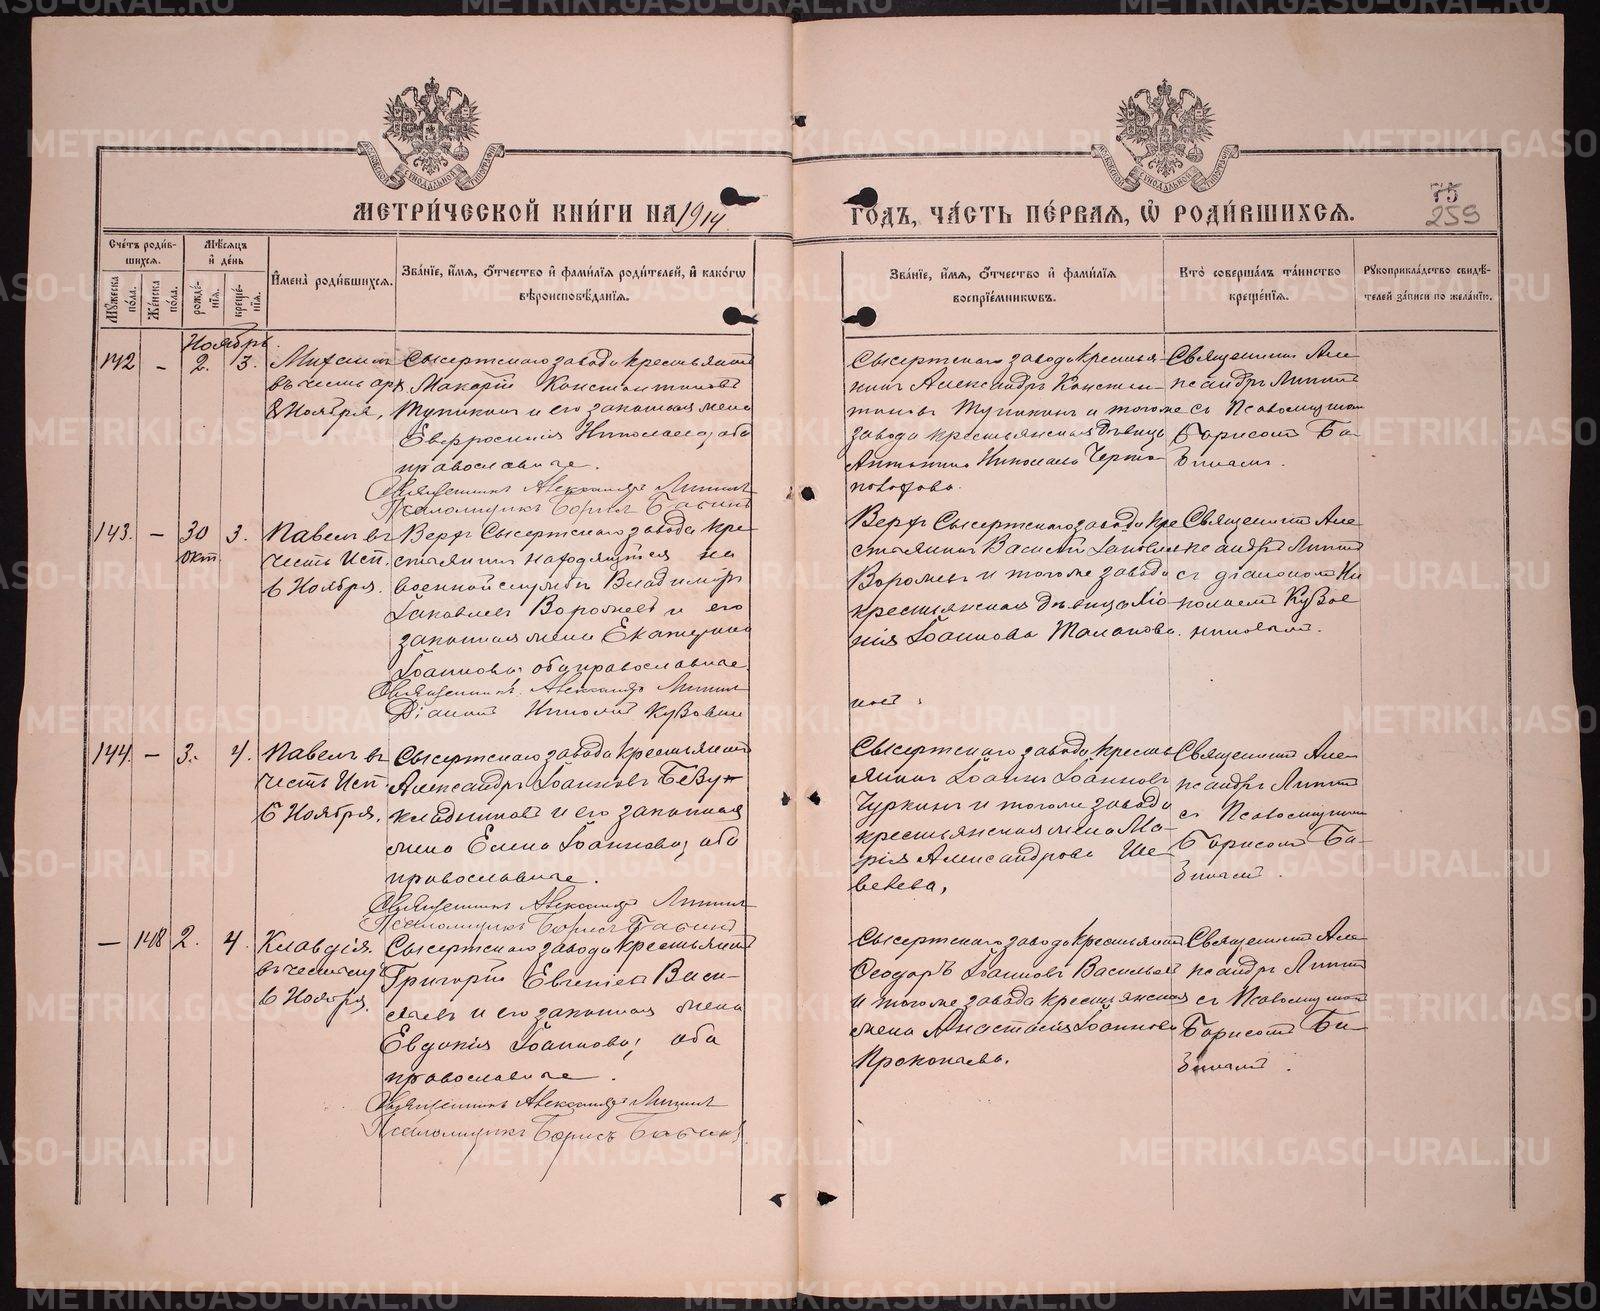 МЕТРИ́ЧЕСКОЙ КНИ́ГИ НА 1914
ГО́ДЪ, ЧА́СТЬ ПЕ́РВАЯ, Ѽ РОДИ́ВШИХСЯ.
75
259
Сче́тъ роди́в-
шихся.
Мꙋ́жеска по́ла.
Же́нска по́ла.
Мѣ́сяцъ
и҆ де́нь
рожде́-
нїѧ.
креще́-
нїѧ.
И҆мена̀ роди́вшихсѧ.
Зва́нїе, и҆́мѧ, ѻ҆́тчество и҆ фами́лїѧ роди́телей, и҆ како́гѡ
вѣроисповѣ́данїѧ.
Зва́нїе, и҆́мѧ, ѻ҆́тчество и҆ фами́лїѧ
воспрїе́мникѡвъ.
Кто̀ соверша́лъ та́инство
креще́нїѧ.
Рꙋкоприкла́дство свидѣ́-
телей за́писи по жела́нїю.
Ноябрь
142 – 2. 3.
Михаилъ
въ честь арх
8 Ноября,
Сысертскаго завода крестьянинъ
Макарій Константиновъ
Тупикинъ и его законная жена
Евфросинія Николаева; оба
православные.
Священникъ Александръ
Псаломщикъ Борисъ
Сысертскаго завода крестья-
нинъ Александръ Констан-
тиновъ Тупикинъ и тогоже
завода крестьянская дѣвица
Антонина Николаева
Священникъ Але-
ксандръ
съ Псаломщикомъ
Борисомъ
143. – 30 окт. 3.
Павелъ въ
честь Исп.
6 Ноября.
Верхъ Сысертскаго завода кре-
стьянинъ находящійся на
военной службѣ Владиміръ
Іаковлевъ и его
законная жена Екатерина
Іоаннова; оба православные
Священникъ Александръ
Діаконъ Николай
Верхъ Сысертскаго завода кре
стьянинъ Василій Іаковлевъ
и тогоже завода
крестьянская дѣвица
Іоаннова Талапова.
Священникъ Але
ксандръ
съ діакономъ Ни
колаемъ
144. – 3. 4.
Павелъ въ
честь Исп
6 Ноября,
Сысертскаго завода крестьянинъ
Александръ Іоанновъ
и его законная
жена Елена Іоаннова; оба
православные.
Священникъ Александръ
Псаломщикъ Борисъ
Сысертскаго завода кресть
янинъ Іоаннъ Іоанновъ
Чуркинъ и тогоже завода
крестьянская жена Ма-
рія Александрова
Священникъ Але-
ксандръ
съ Псаломщикомъ
Борисомъ
– 148 2. 4.
Клавдія.
въ честь
6 Ноября.
Сысертскаго завода крестьянинъ
Григорій Евгеніевъ Васи-
льевъ и его законная жена
Евдокія Іоаннова; оба
православные.
Священникъ Александръ
Псаломщикъ Борисъ
Сысертскаго завода крестьянинъ
Ѳеодоръ Іоанновъ Васильевъ
и тогоже завода крестьянская
жена Анастасія Іоаннова
Прокопьева.
Священникъ Але
ксандръ
съ Псаломщикомъ
Борисомъ
METRIKI.GASO-URAL.RU